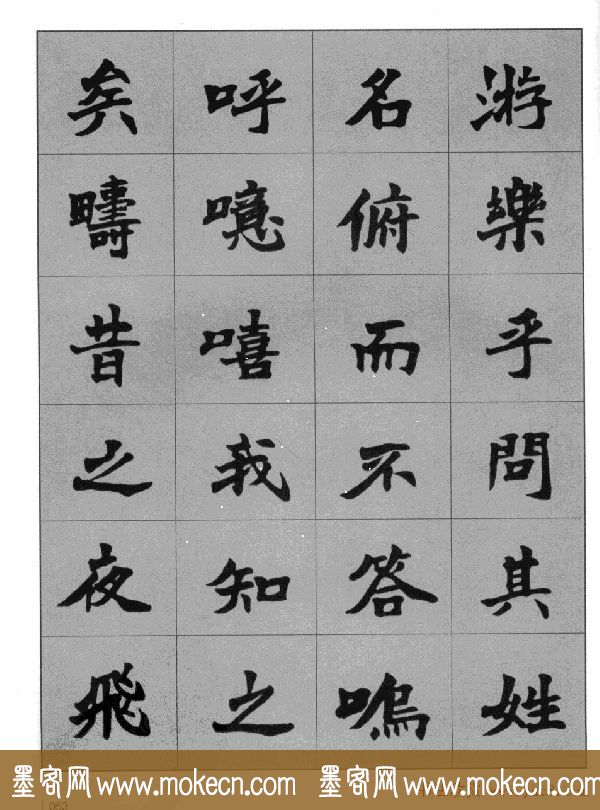 游樂乎問其姓
名俯而不答嗚
呼噫嘻我知之
矣疇昔之夜飛
墨客网 www.mokecn.com 墨客网 www.mokecn.com
053